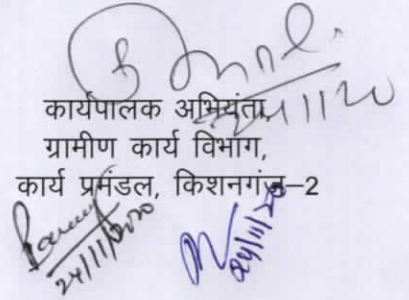 24/11/20
कार्यपालक अभियंता,
ग्रामीण कार्य विभाग,
कार्य प्रमंडल, किशनगंज–2
24/11/2020
24/11/20